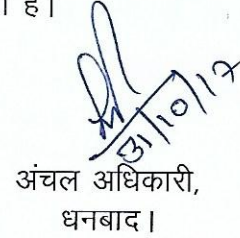 है।
31/10/17
अंचल अधिकारी,
धनबाद।